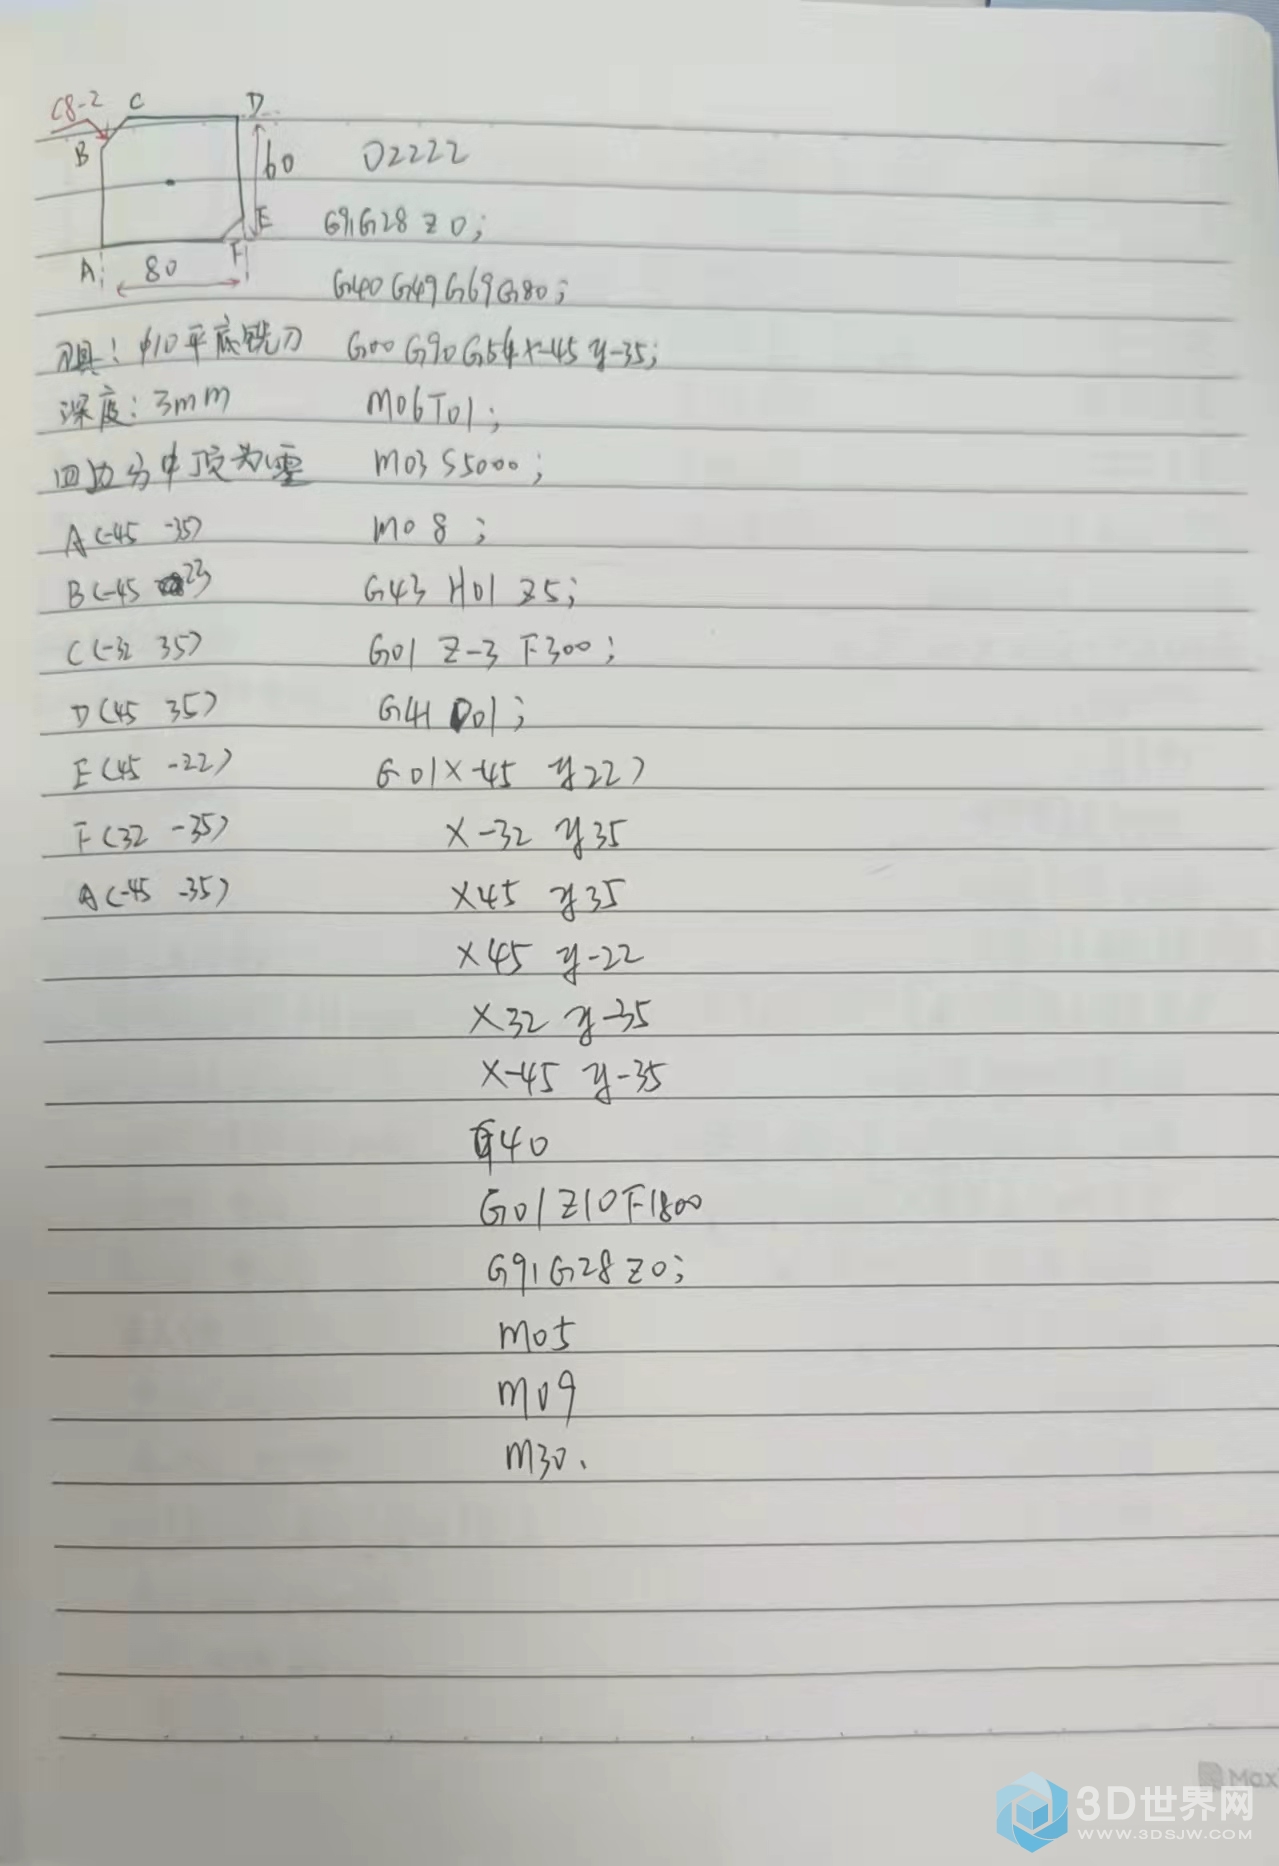 C8-2 C D
B
60
E
A 80 F
刀具: φ10平底铣刀
深度: 3mm
四边分中顶为零
A(-45 -35)
B(-45 23)
C(-32 35)
D(45 35)
E(45 -22)
F(32 -35)
A(-45 -35)
O2222
G91G28 Z0;
G40 G49 G69 G80;
G00 G90 G54 X-45 y-35;
M06T01;
M03 S5000;
M08;
G43 H01 Z5;
G01 Z-3 F300;
G41 D01;
G01X-45 y22)
X-32 y35
X45 y35
X45 y-22
X32 y-35
X-45 y-35
G40
G01Z10F1800
G91G28Z0;
M05
M09
M30.
3D世界网
WWW.3DSJW.COM